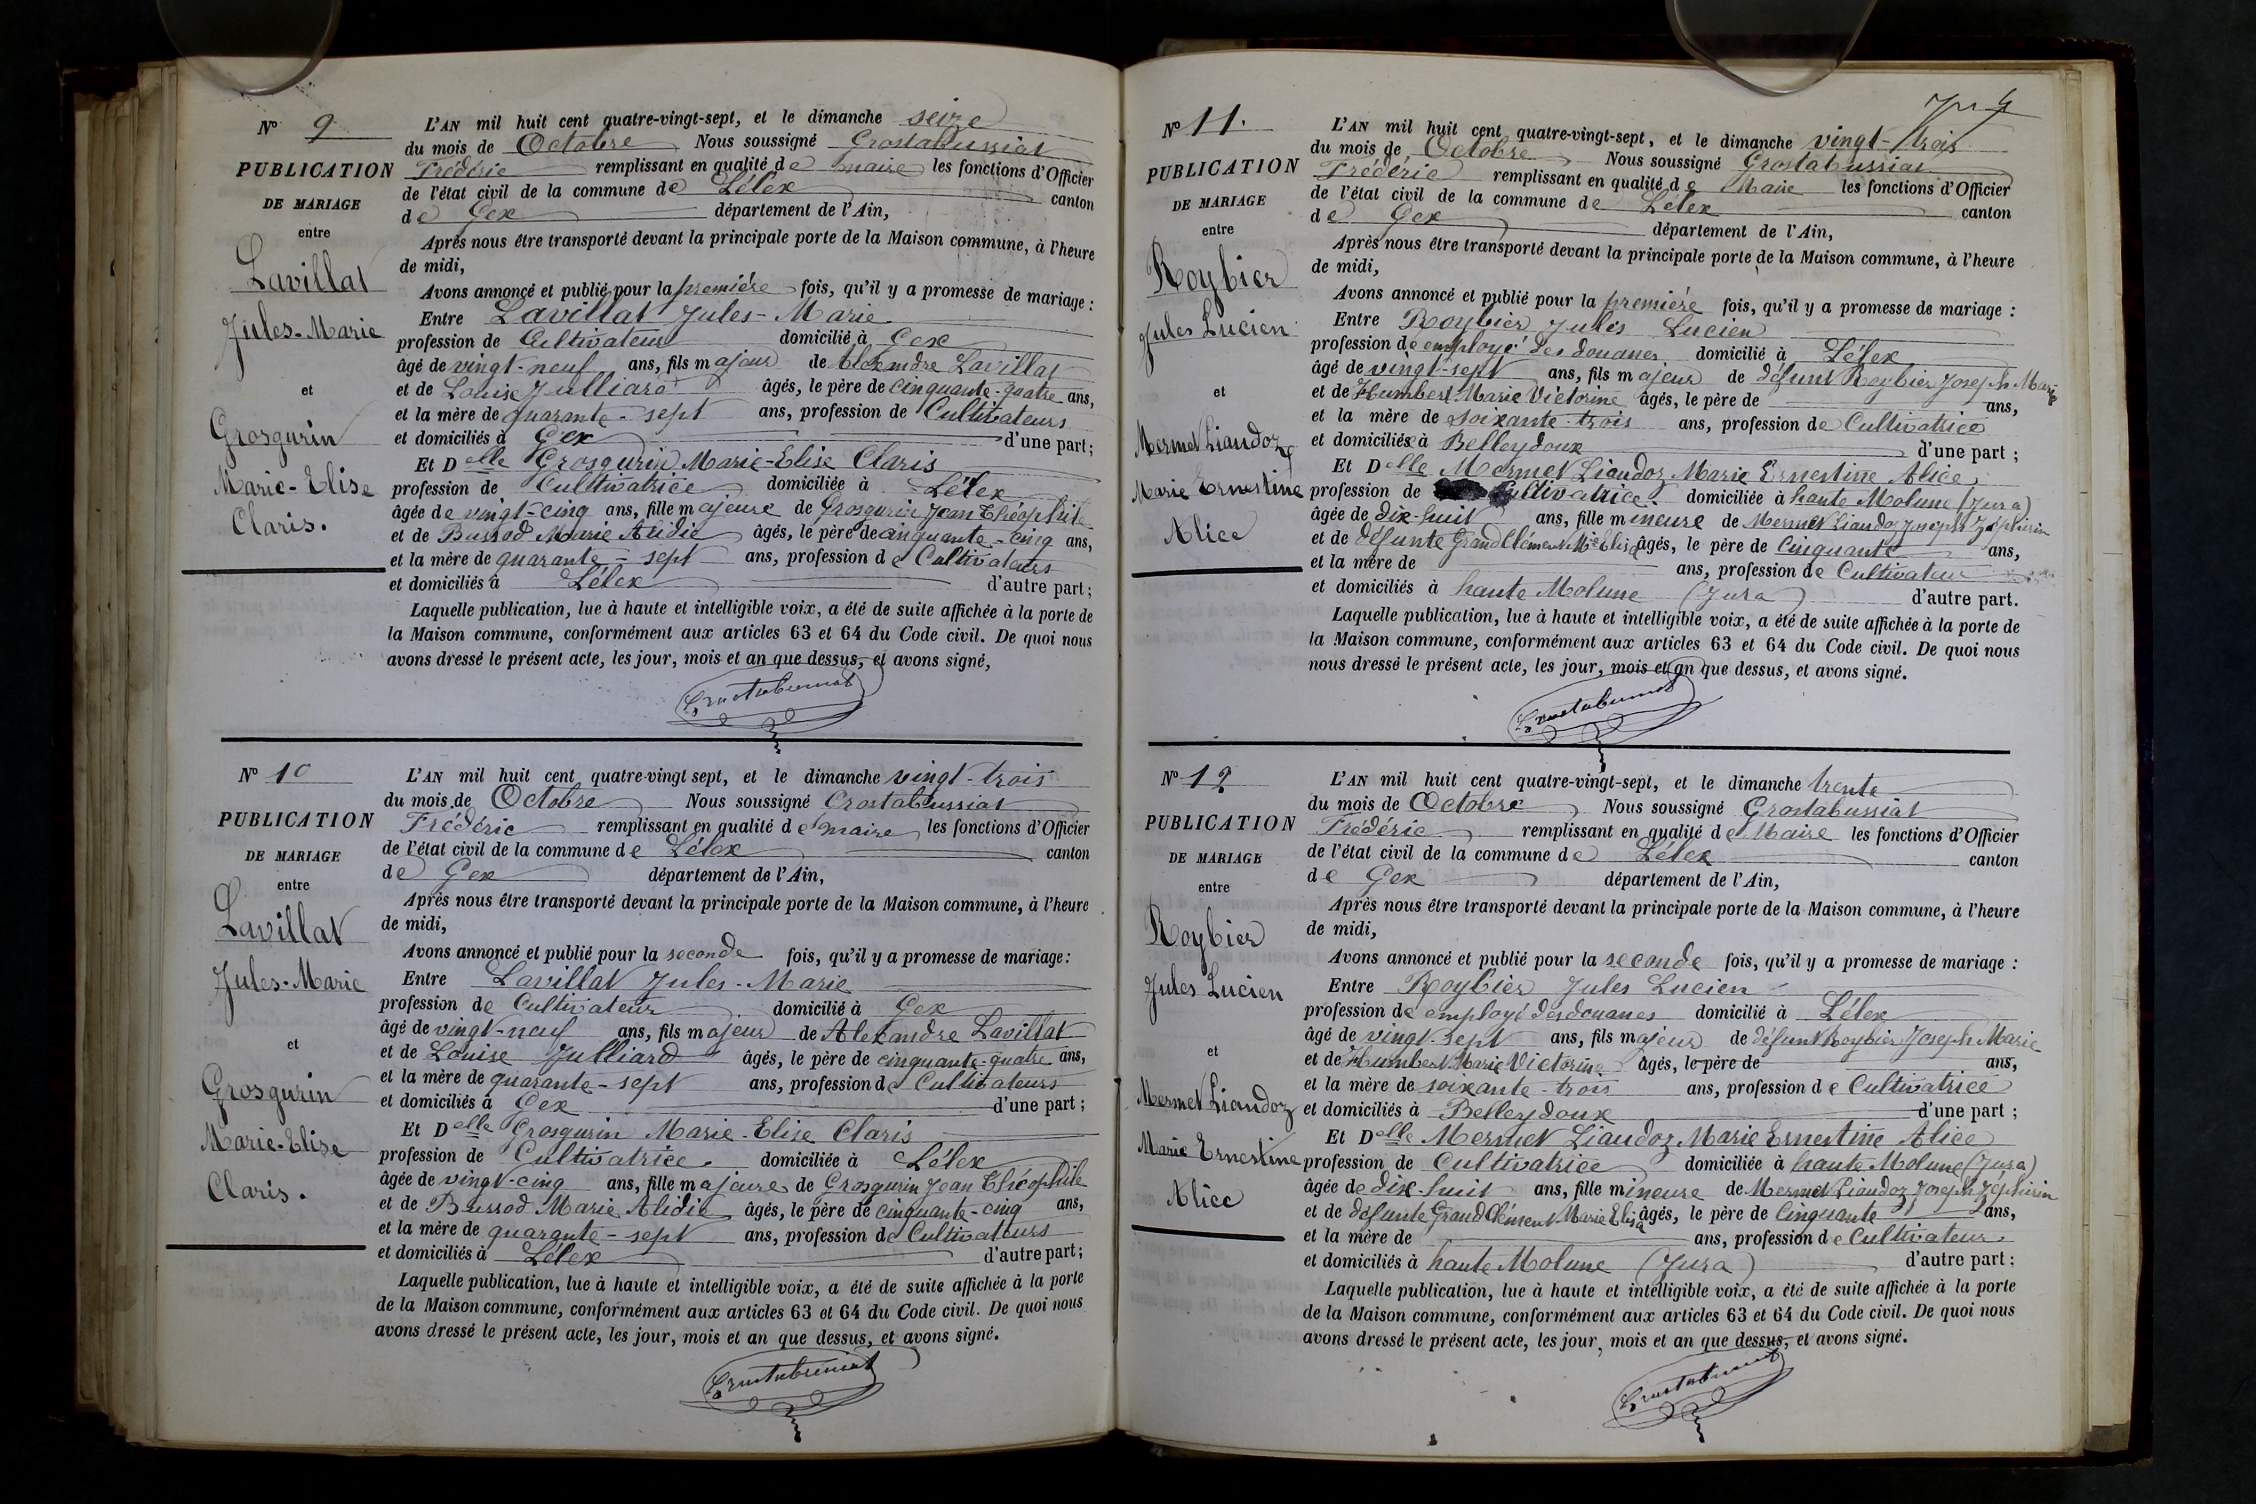 Nº 9
PUBLICATION
DE MARIAGE
entre
Lavillat
Jules-Marie
et
Grosgurin
Marie-Elise
Claris.
L'AN mil huit cent quatre-vingt-sept, et le dimanche seize
du mois de Octobre Nous soussigné Grostabussiat
Frédéric remplissant en qualité de maire les fonctions d'Officier
de l'état civil de la commune de Lélex canton
de Gex département de l'Ain,
Après nous être transporté devant la principale porte de la Maison commune, à l'heure
de midi,
Avons annoncé et publié pour la première fois, qu'il y a promesse de mariage :
Entre Lavillat Jules-Marie
profession de Cultivateur domicilié à Gex
âgé de vingt-neuf ans, fils majeur de Alexandre Lavillat
et de Louise Julliard âgés, le père de cinquante-quatre ans,
et la mère de quarante-sept ans, profession de Cultivateurs
et domiciliés à Gex d'une part ;
Et Delle Grosgurin Marie-Elise Claris
profession de Cultivatrice domiciliée à Lélex
âgée de vingt-cinq ans, fille majeure de Grosgurin Jean Théophile
et de Bussod Marie Alidie âgés, le père de cinquante-cinq ans,
et la mère de quarante-sept ans, profession de Cultivateurs
et domiciliés à Lélex d'autre part ;
Laquelle publication, lue à haute et intelligible voix, a été de suite affichée à la porte de
la Maison commune, conformément aux articles 63 et 64 du Code civil. De quoi nous
avons dressé le présent acte, les jour, mois et an que dessus, et avons signé,
Grostabussiat
Nº 10
PUBLICATION
DE MARIAGE
entre
Lavillat
Jules-Marie
et
Grosgurin
Marie-Elise
Claris.
L'AN mil huit cent quatre-vingt sept, et le dimanche vingt-trois
du mois de Octobre Nous soussigné Grostabussiat
Frédéric remplissant en qualité de maire les fonctions d'Officier
de l'état civil de la commune de Lélex canton
de Gex département de l'Ain,
Après nous être transporté devant la principale porte de la Maison commune, à l'heure
de midi,
Avons annoncé et publié pour la seconde fois, qu'il y a promesse de mariage :
Entre Lavillat Jules-Marie
profession de Cultivateur domicilié à Gex
âgé de vingt-neuf ans, fils majeur de Alexandre Lavillat
et de Louise Julliard âgés, le père de cinquante-quatre ans,
et la mère de quarante-sept ans, profession de Cultivateurs
et domiciliés à Gex d'une part ;
Et Delle Grosgurin Marie-Elise Claris
profession de Cultivatrice domiciliée à Lélex
âgée de vingt-cinq ans, fille majeure de Grosgurin Jean Théophile
et de Bussod Marie Alidie âgés, le père de cinquante-cinq ans,
et la mère de quarante-sept ans, profession de Cultivateurs
et domiciliés à Lélex d'autre part ;
Laquelle publication, lue à haute et intelligible voix, a été de suite affichée à la porte
de la Maison commune, conformément aux articles 63 et 64 du Code civil. De quoi nous
avons dressé le présent acte, les jour, mois et an que dessus, et avons signé.
Grostabussiat
Nº 11.
PUBLICATION
DE MARIAGE
entre
Roybier
Jules Lucien
et
Mermet Liaudoz
Marie Ernestine
Alice
L'AN mil huit cent quatre-vingt-sept, et le dimanche vingt-trois
du mois de Octobre Nous soussigné Grostabussiat
Frédéric remplissant en qualité de Maire les fonctions d'Officier
de l'état civil de la commune de Lélex canton
de Gex département de l'Ain,
Après nous être transporté devant la principale porte de la Maison commune, à l'heure
de midi,
Avons annoncé et publié pour la première fois, qu'il y a promesse de mariage :
Entre Roybier Jules Lucien
profession de employé des douanes domicilié à Lélex
âgé de vingt-sept ans, fils majeur de défunt Roybier Joseph Marie
et de Humbert Marie Victorine âgés, le père de ans,
et la mère de soixante-trois ans, profession de Cultivatrice
et domiciliés à Belleydoux d'une part ;
Et Delle Mermet Liaudoz Marie Ernestine Alice
profession de Cultivatrice domiciliée à haute Molune (Jura)
âgée de dix-huit ans, fille mineure de Mermet Liaudoz Joseph Zéphirin
et de défunte Grand Clément Mie Elisa âgés, le père de Cinquante ans,
et la mère de ans, profession de Cultivateur
et domiciliés à haute Molune (Jura) d'autre part.
Laquelle publication, lue à haute et intelligible voix, a été de suite affichée à la porte de
la Maison commune, conformément aux articles 63 et 64 du Code civil. De quoi nous
nous dressé le présent acte, les jour, mois et an que dessus, et avons signé.
Grostabussiat
Nº 12
PUBLICATION
DE MARIAGE
entre
Roybier
Jules Lucien
et
Mermet Liaudoz
Marie Ernestine
Alice
L'AN mil huit cent quatre-vingt-sept, et le dimanche trente
du mois de Octobre Nous soussigné Grostabussiat
Frédéric remplissant en qualité de Maire les fonctions d'Officier
de l'état civil de la commune de Lélex canton
de Gex département de l'Ain,
Après nous être transporté devant la principale porte de la Maison commune, à l'heure
de midi,
Avons annoncé et publié pour la seconde fois, qu'il y a promesse de mariage :
Entre Roybier Jules Lucien
profession de employé des douanes domicilié à Lélex
âgé de vingt-sept ans, fils majeur de défunt Roybier Joseph Marie
et de Humbert Marie Victorine âgés, le père de ans,
et la mère de soixante-trois ans, profession de Cultivatrice
et domiciliés à Belleydoux d'une part ;
Et Delle Mermet Liaudoz Marie Ernestine Alice
profession de Cultivatrice domiciliée à haute Molune (Jura)
âgée de dix-huit ans, fille mineure de Mermet Liaudoz Joseph Zéphirin
et de défunte Grand Clément Marie Elisa âgés, le père de Cinquante ans,
et la mère de ans, profession de Cultivateur
et domiciliés à haute Molune (Jura) d'autre part ;
Laquelle publication, lue à haute et intelligible voix, a été de suite affichée à la porte
de la Maison commune, conformément aux articles 63 et 64 du Code civil. De quoi nous
avons dressé le présent acte, les jour, mois et an que dessus, et avons signé.
Grostabussiat